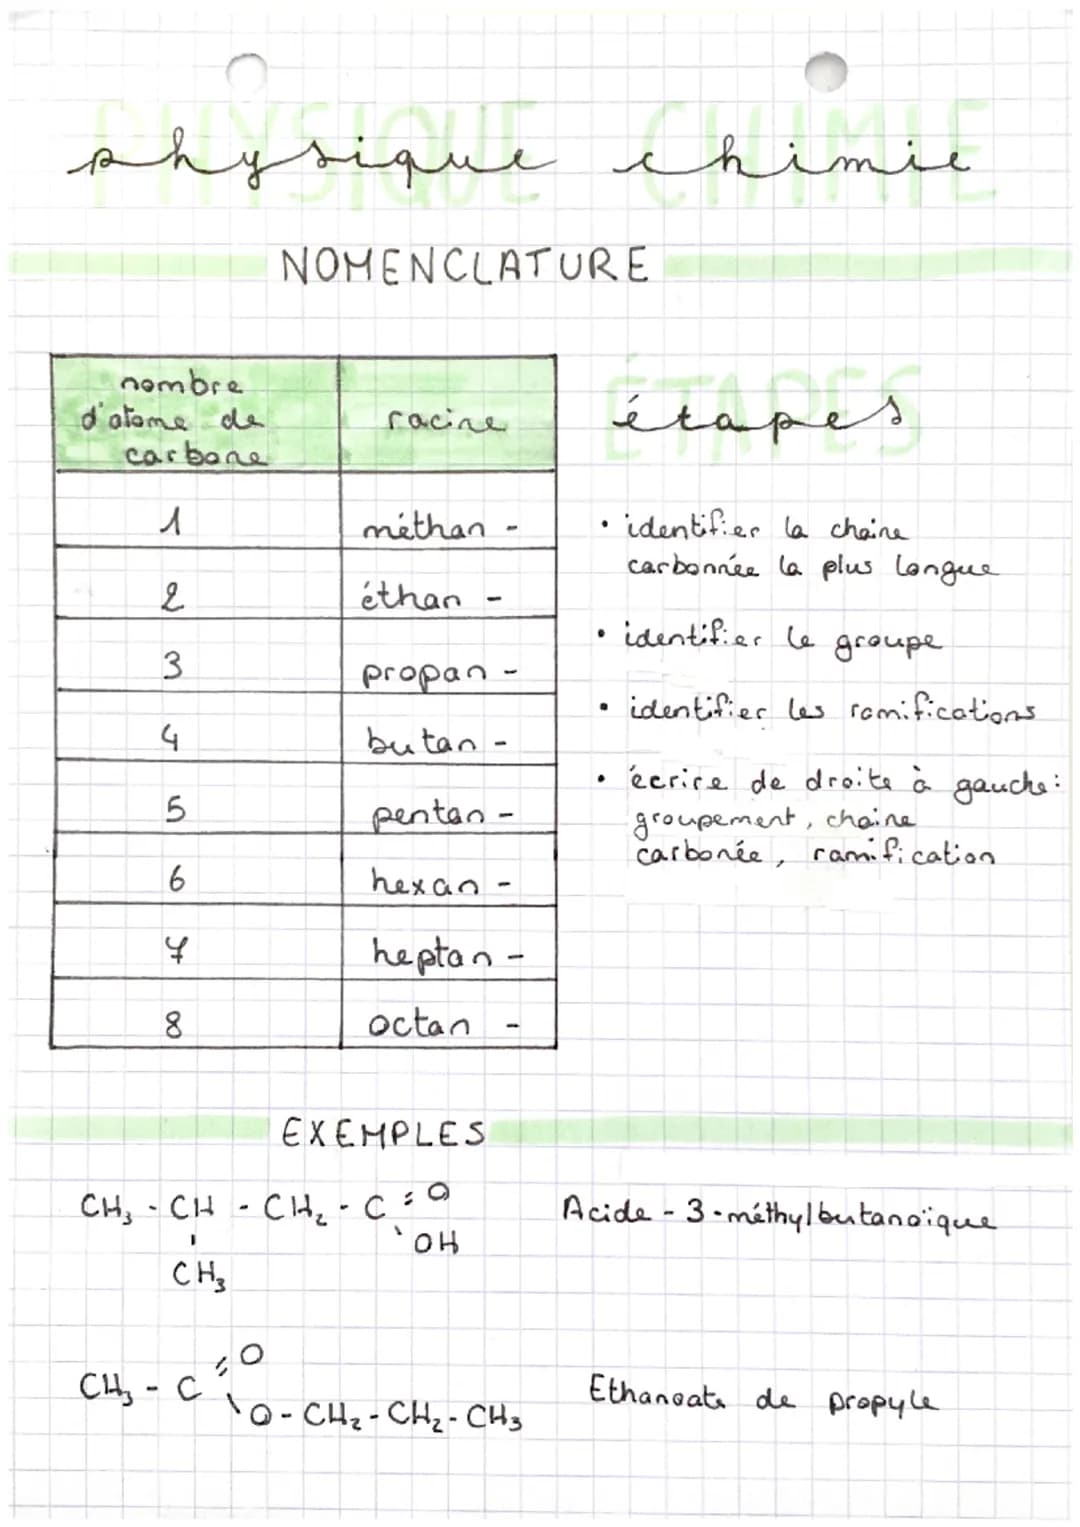 PHYSIQUE CHIMIE
physique chimie
NOMENCLATURE
nombre
d'atome de
carbone
racine
1 méthan -
2 éthan -
3 propan -
4 butan -
5 pentan -
6 hexan -
7 heptan -
8 octan -
ÉTAPES
étapes
• identifier la chaine
carbonnée la plus longue
• identifier le groupe
• identifier les ramifications
• écrire de droite à gauche :
groupement, chaine
carbonée, ramification
EXEMPLES
CH₃ - CH - CH₂ - C = O
OH
CH₃
Acide - 3 - méthylbutanoïque
O
CH₃ - C
O - CH₂ - CH₂ - CH₃
Ethanoate de propyle